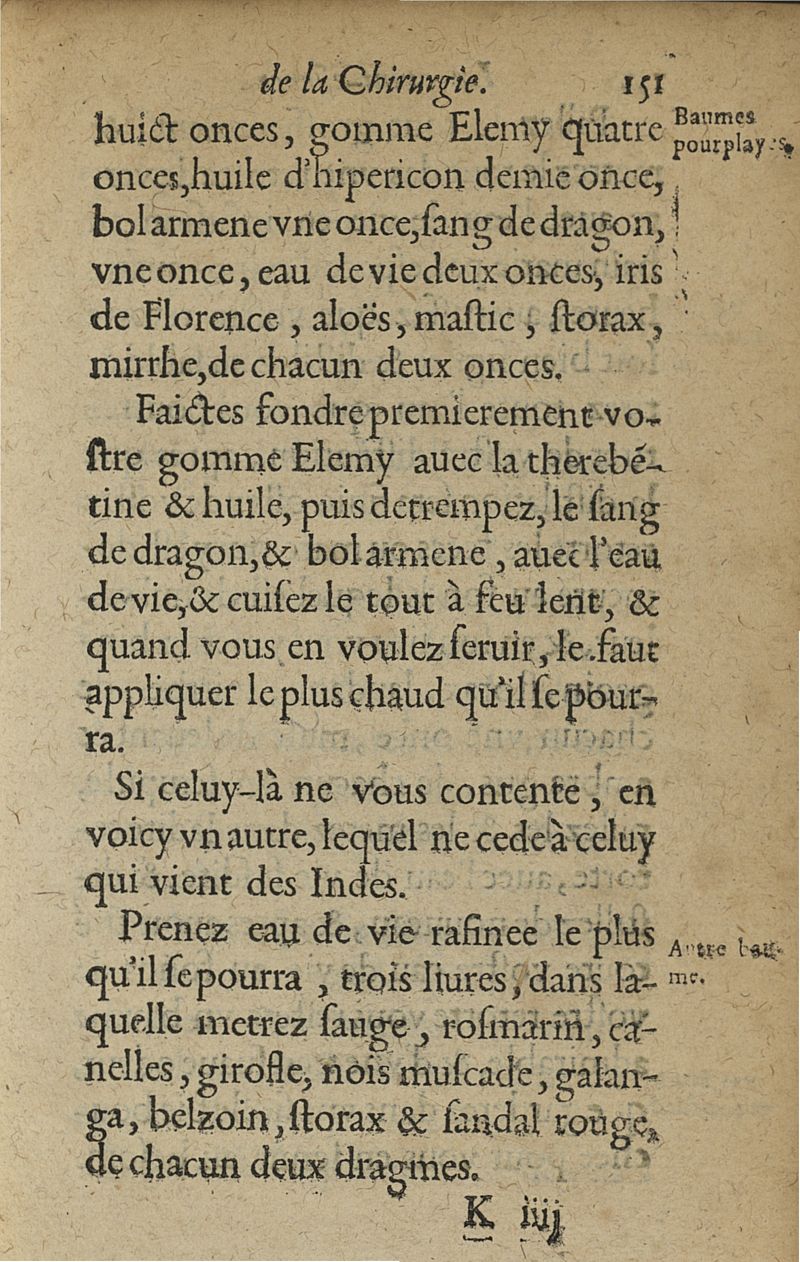 de la Chirurgie. 151
huict onces, gomme Elemy quatre
Baumes
pour playes.
onces, huile d'hipericon demie once,
bol armene vne once, ſang de dragon,
vne once, eau de vie deux onces, iris
de Florence, aloës, maſtic, ſtorax,
mirrhe, de chacun deux onces.
Faictes fondre premierement vo-
ſtre gomme Elemy auec la therebẽ-
tine & huile, puis detrempez, le ſang
de dragon, & bol armene, auec l'eau
de vie, & cuiſez le tout à feu lent, &
quand vous en voulez ſeruir, le faut
appliquer le plus chaud qu'il ſe pour-
ra.
Si celuy-là ne vous contente, en
voicy vn autre, lequel ne cede à celuy
qui vient des Indes.
Prenez eau de vie rafinee le plus
Autre bau-
me.
qu'il ſe pourra, trois liures, dans la-
quelle metrez ſauge, roſmarin, ca-
nelles, girofle, nois muſcade, galan-
ga, belzoin, ſtorax & ſandal rouge,
de chacun deux dragmes.
K iiij